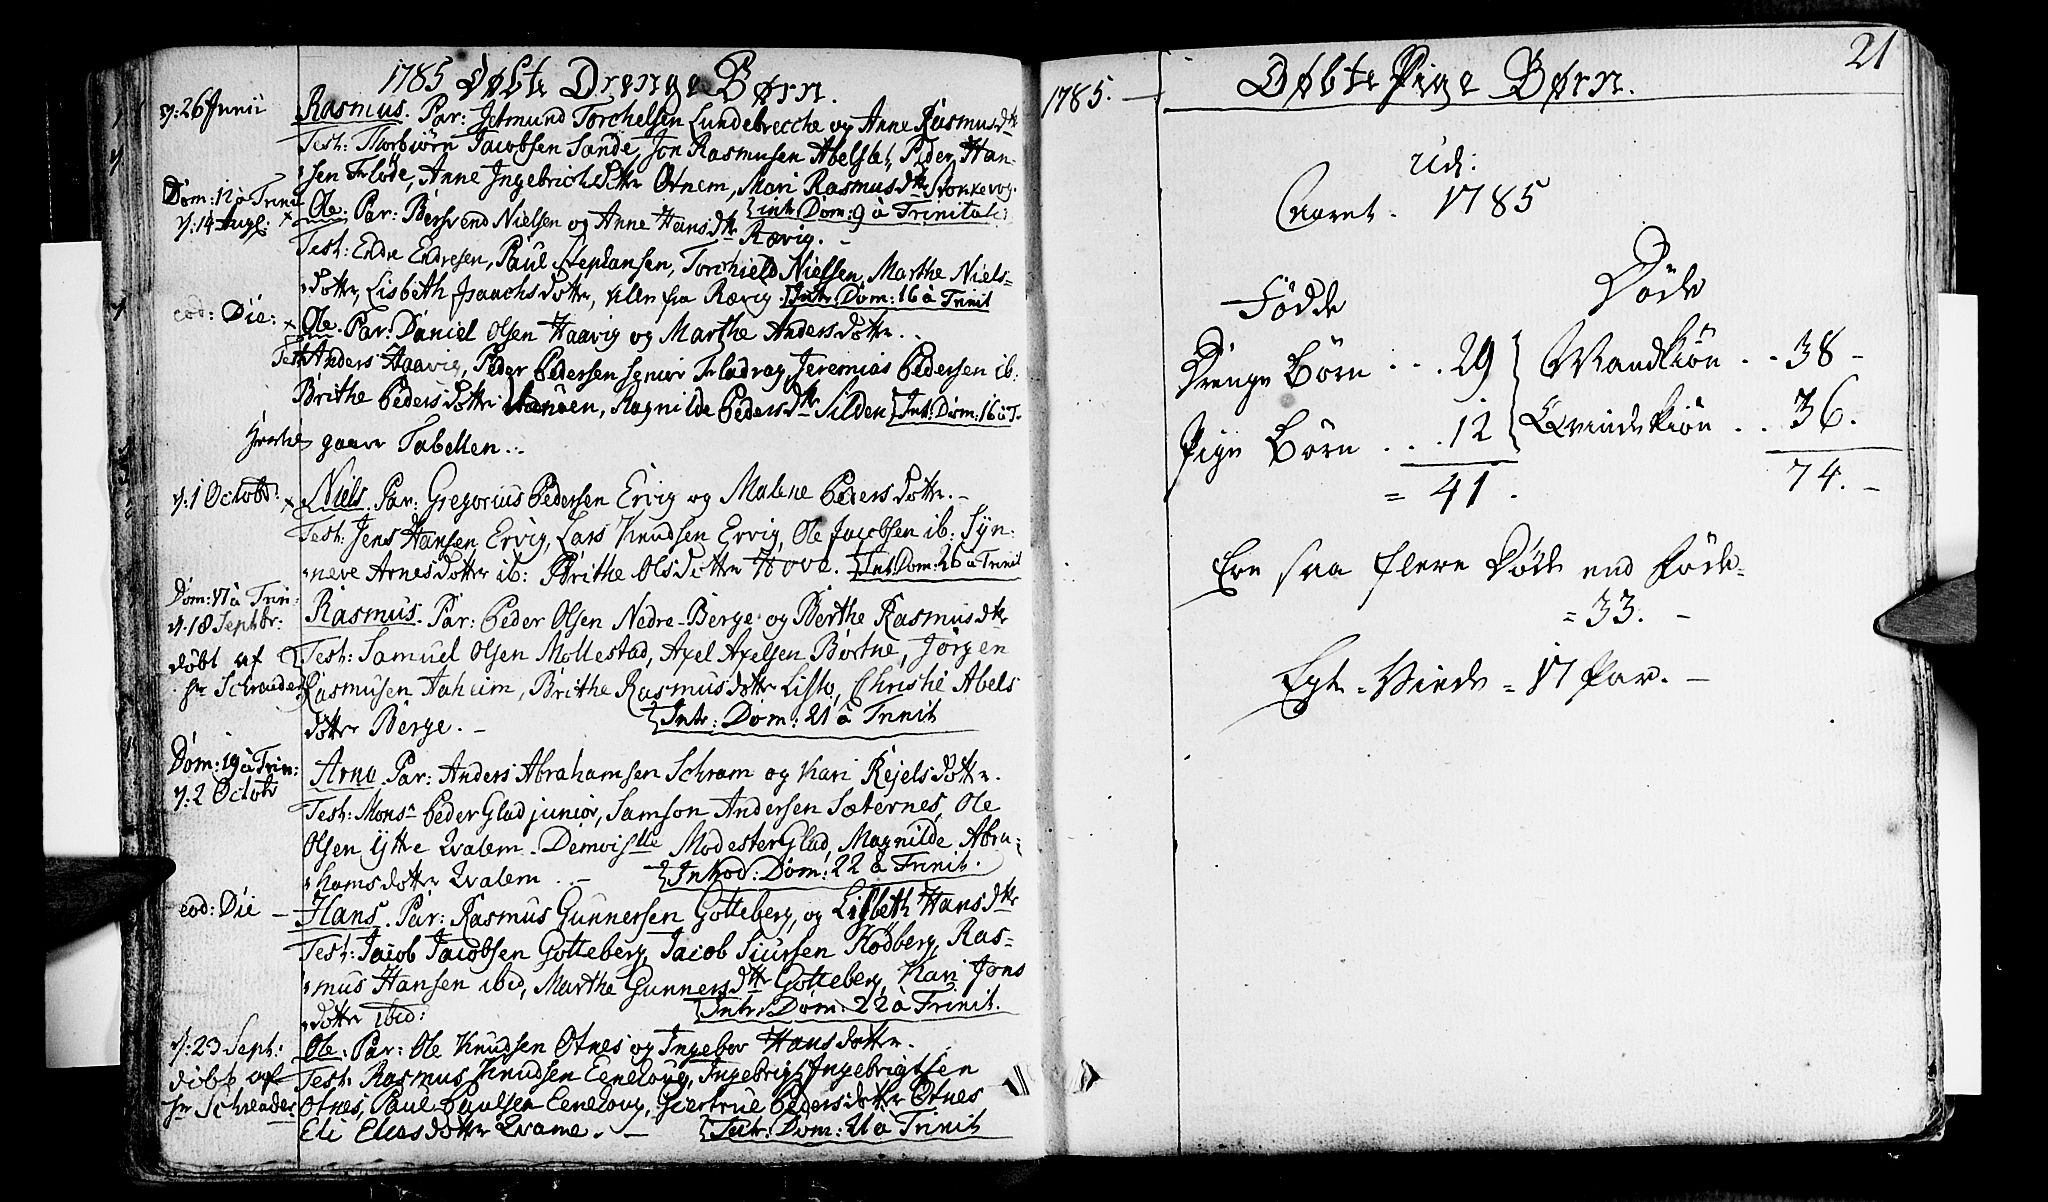 1785 Døbte Drenge Børn.
d: 26 Junii Rasmus. Par: Jetmund Torchelsen Lundebrecche og Anne Rasmusdtr
Test: Thorbiörn Jacobsen Sande, Jon Rasmusen Abelset, Peder Han-
sen Flöde, Anne Ingebrichsdotter Otnem, Mari Rasmusdtr Stokkevog.
Dom: 12 à Trinit {intr: Dom: 9 à Trinitat:
d: 14 Aug: × Ole. Par: Bersvend Nielsen og Anne Hansdtr Rævig. -
Test: Endre Endresen, Paul Stephansen, Torchield Nielsen, Marthe Niels-
dotter, Lisbeth Isaachsdotter, alle fra Rævig. {Intr: Dom: 16 à Trinit
eod: Die: × Ole. Par: Daniel Olsen Haavig og Marthe Andersdotter.
Test: Anders Haavig, Peder Pedersen senior Fladrag, Jeremias Pedersen ib:
Brithe Pedersdotter Hanöen, Magnilde Pedersdtr Silden {Intr: Dom: 16 à T.
gaaer Tabellen..
d: 1 Octobr: × Niels. Par: Gregorius Pedersen Ervig og Malene Pedersdotter. -
Test: Jens Hansen Ervig, Lars Knudsen Ervig, Ole Jacobsen ib: Syn-
neve Arnesdotter ib: Brithe Olsdotter Hove. {Int: Dom: 26 à Trinit
Dom: 17 à Trin:
d. 18 Septbr: Rasmus. Par: Peder Olsen Nedre-Berge og Berthe Rasmusdtr
døbt af Test: Samuel Olsen Mollestad, Axel Axelsen Børtne, Jörgen
Hr Schrøuder Rasmusen Aaheim, Brithe Rasmusdotter Listo, Christi Abels
dotter Berge. - {Intr: Dom: 21 à Trinit
Dom: 19 à Trin: Arne. Par: Anders Abrahamsen Schram og Kari Rejelsdotter.
d: 2 Octobr Test: Monsr Peder Glad junior, Samson Andersen Sæternes, Ole
Olsen Ytre Qvalem. Demoiselle Modester Glad, Magnilde Abra-
hamsdotter Qvalem. - {Introd: Dom: 22 à Trinit.
eod: Die - Hans. Par: Rasmus Gunnersen Gotteberg, og Lisbeth Hansdtr
Test: Jacob Jacobsen Gotteberg, Jacob Siursen Rödberg, Ras-
mus Hansen ibid, Marthe Gunnersdtr Gotteberg, Kari Jons
dotter ibid: {Intr: Dom: 22 à Trinit.
d: 23 Sept: Ole: Par: Ole Knudsen Otnes og Ingebor Hansdotter.
døbt af Test: Rasmus Knudsen Eeneboug, Ingebrigt Ingebrigtsen
Hr Schreuder Otnes, Paul Paulsen Eeneboug, Giertrue Pedersdotter Otnes
Eli Eliasdotter Qvame. - {Intr: Dom: 21 à Trinit
21
1785. - Døbte Pige Børn.
udi
Aaret. 1785
Födde Döde
Drenge Börn . . . 29 } Mandkiön . . 38 -
Pige Börn . . . 12 } Qvindekiön . . 36.
= 41. 74. -
Ere saa flere Döde end Födde
= 33. -
Egte-Viede = 17 Par. -